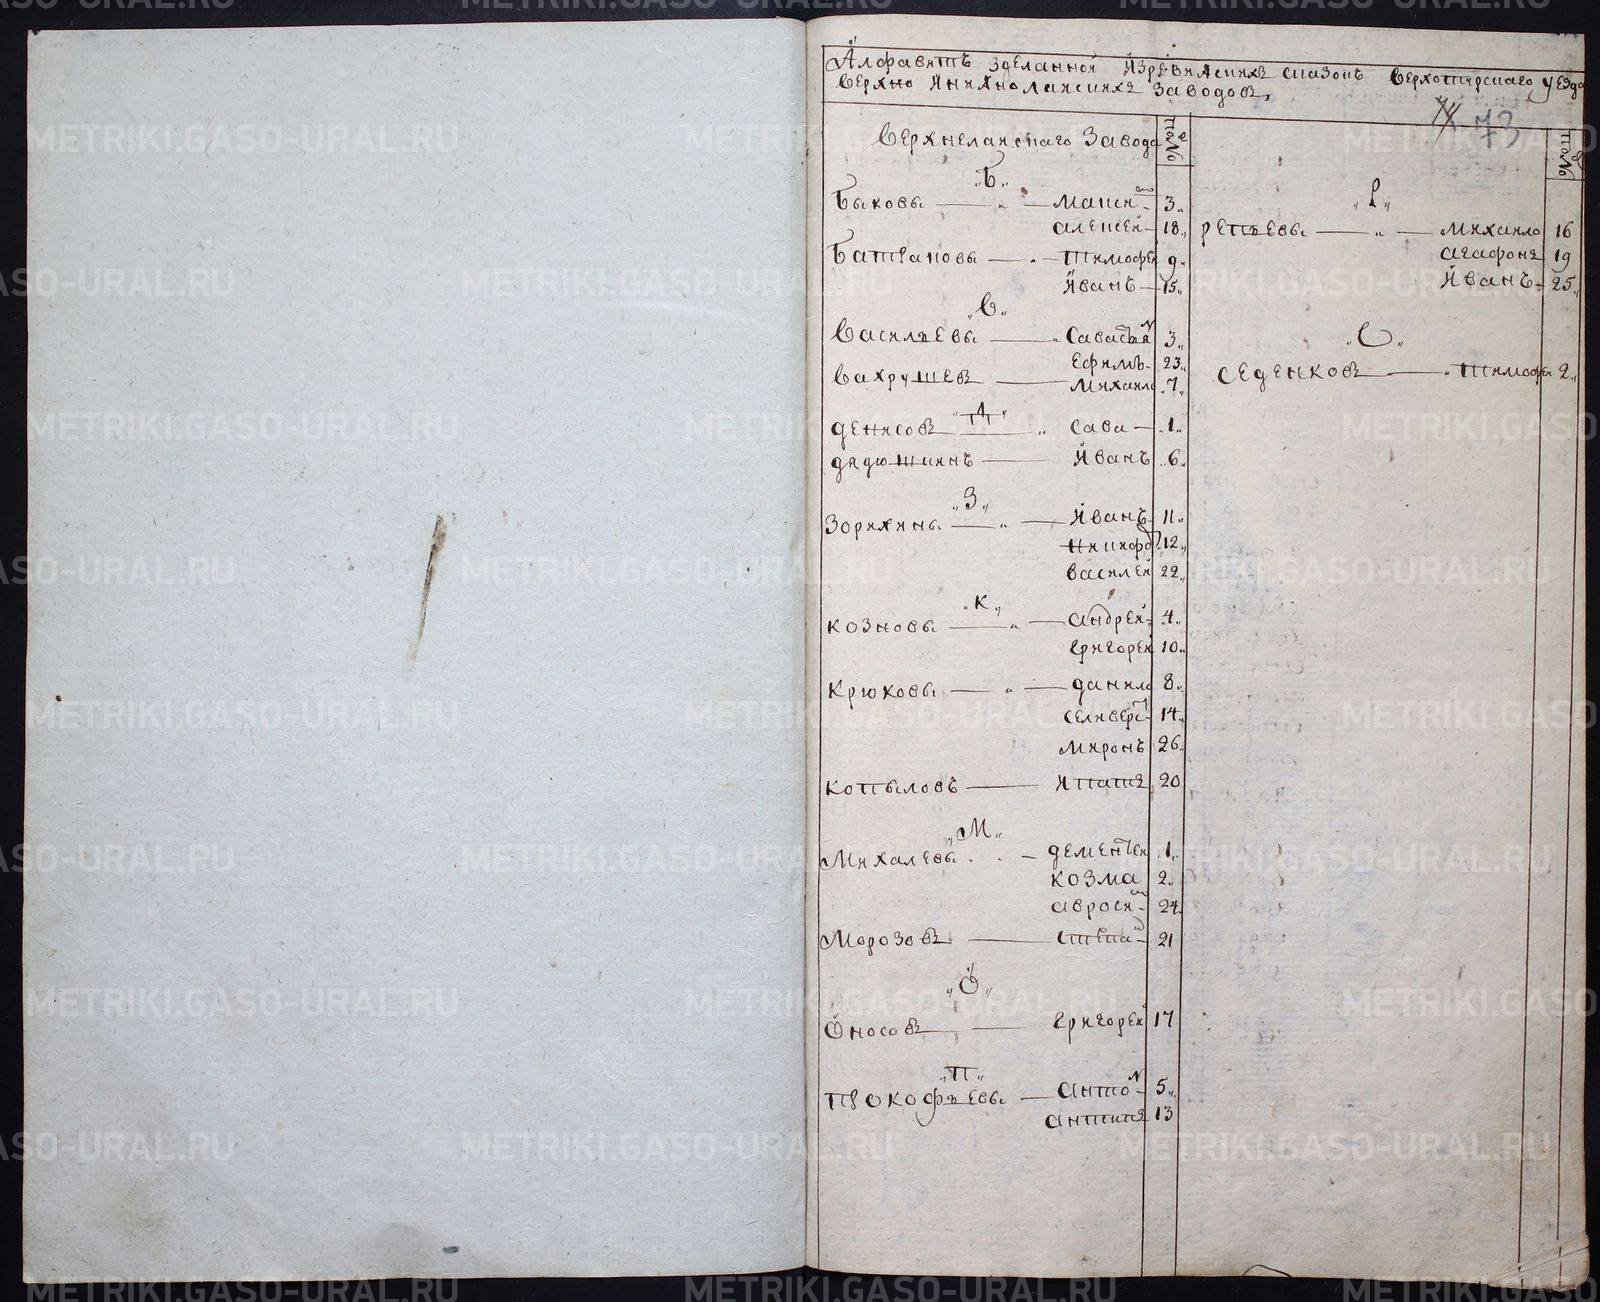 Алфавитъ зделанной изревижскихъ сказокъ Верхотурскаго уезда
Верхно инижнолайскихъ заводовъ,
74 73
Верхнелайскаго Завода
по №
„Б„
Быковы — „ — Матвй 3„
алексей 18„
Батраковы — „ — Тимофей 9„
Иванъ 15„
„В„
Васильевы — „ Савастьян 3„
Ефимъ 23„
Вахрушевъ — Михаило 7„
„Д„
денисовъ — „ Сава — „1„
дядюшкинъ — Иванъ „6„
„З„
Зорихины — „ — Иванъ 11„
Никифор 12„
василей 22„
„К„
козновы — „ — андрей „4„
григорей 10„
Крюковы — „ — данило 8„
селиверст 14„
миронъ 26„
копыловъ — ипатъ 20
„М„
Михалевы — дементей „1„
козма 2„
24„
Морозовъ — степан 21
„О„
Оносовъ — григорей 17
„П„
Прокофьевы — антон 5„
антипъ 13
по №
„Р„
репьевы — „ — михаило 16
агафонъ 19
Иванъ 25„
„С„
седенковъ — „ тимофей 2„
METRIKI.GASO-URAL.RU